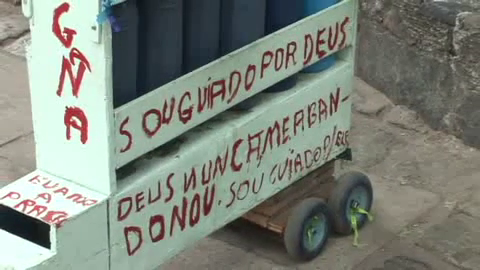 GANA
SOU GUIADO POR DEUS
DEUS NUNCA ME ABAN-
DONOU. SOU GUIADO P/ELE
A
PRA